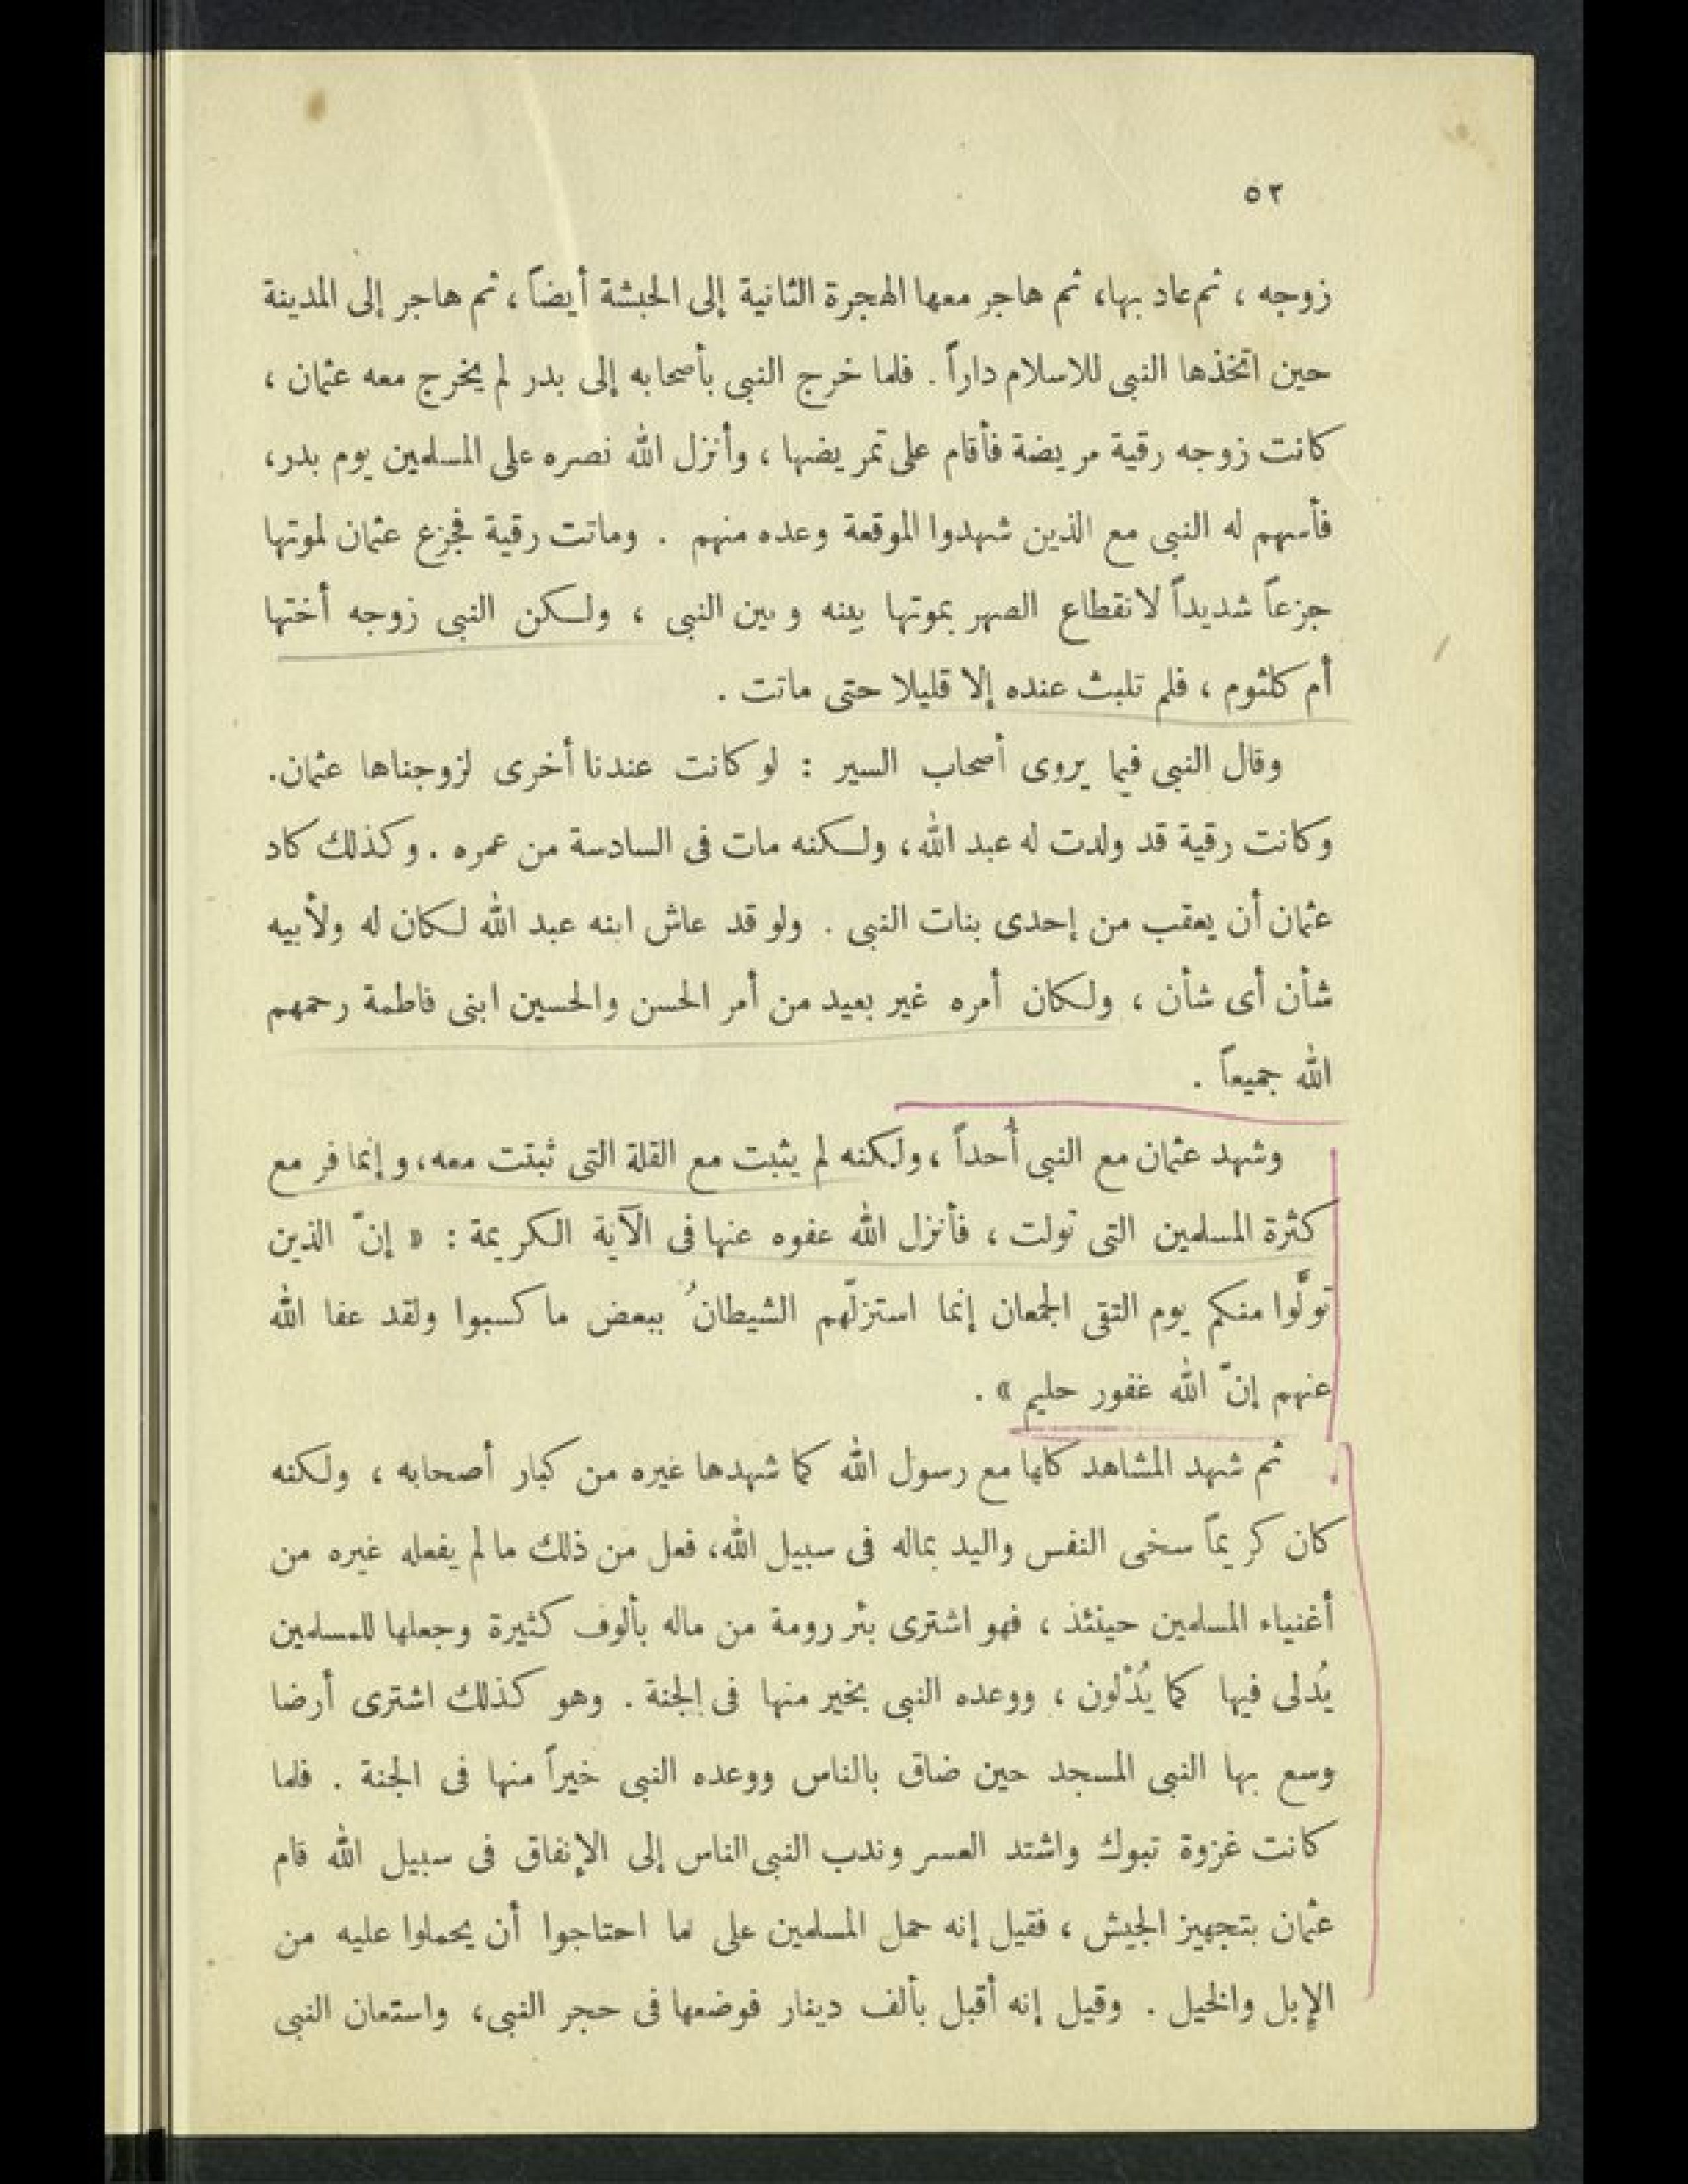 ٥٢
زوجه ، ثم عاد بها، ثم هاجر معها الهجرة الثانية إلى الحبشة أيضاً ، ثم هاجر إلى المدينة
حين اتخذها النبى للاسلام داراً . فلما خرج النبى بأصحابه إلى بدر لم يخرج معه عثمان ،
كانت زوجه رقية مريضة فأقام على تمريضها ، وأنزل الله نصره على المسلمين يوم بدر،
فأسهم له النبى مع الذين شهدوا الموقعة وعده منهم . وماتت رقية فجزع عثمان لموتها
جزعاً شديداً لانقطاع الصهر بموتها بينه وبين النبى ، ولكن النبى زوجه أختها
أم كلثوم ، فلم تلبث عنده إلا قليلا حتى ماتت .
وقال النبى فيما يروى أصحاب السير : لو كانت عندنا أخرى لزوجناها عثمان.
وكانت رقية قد ولدت له عبد الله، ولكنه مات فى السادسة من عمره . وكذلك كاد
عثمان أن يعقب من إحدى بنات النبى . ولو قد عاش ابنه عبد الله لكان له ولأبيه
شأن أى شأن ، ولكان أمره غير بعيد من أمر الحسن والحسين ابنى فاطمة رحمهم
الله جميعاً .
وشهد عثمان مع النبى أُحداً ، ولكنه لم يثبت مع القلة التى ثبتت معه، وإنما فر مع
كثرة المسلمين التى تولت ، فأنزل الله عفوه عنها فى الآية الكريمة : « إنّ الذين
تولَّوا منكم يوم التقى الجمعان إنما استزلّهم الشيطانُ ببعض ما كسبوا ولقد عفا الله
عنهم إنّ الله غفور حليم » .
ثم شهد المشاهد كلها مع رسول الله كما شهدها غيره من كبار أصحابه ، ولكنه
كان كريماً سخى النفس واليد بماله فى سبيل الله، فعل من ذلك ما لم يفعله غيره من
أغنياء المسلمين حينئذ ، فهو اشترى بئر رومة من ماله بألوف كثيرة وجعلها للمسلمين
يُدلى فيها كما يُدْلون ، ووعده النبى بخير منها فى الجنة . وهو كذلك اشترى أرضا
وسع بها النبى المسجد حين ضاق بالناس ووعده النبى خيراً منها فى الجنة . فلما
كانت غزوة تبوك واشتد العسر وندب النبى الناس إلى الإنفاق فى سبيل الله قام
عثمان بتجهيز الجيش ، فقيل إنه حمل المسلمين على ما احتاجوا أن يحملوا عليه من
الإبل والخيل . وقيل إنه أقبل بألف دينار فوضعها فى حجر النبى، واستعان النبى